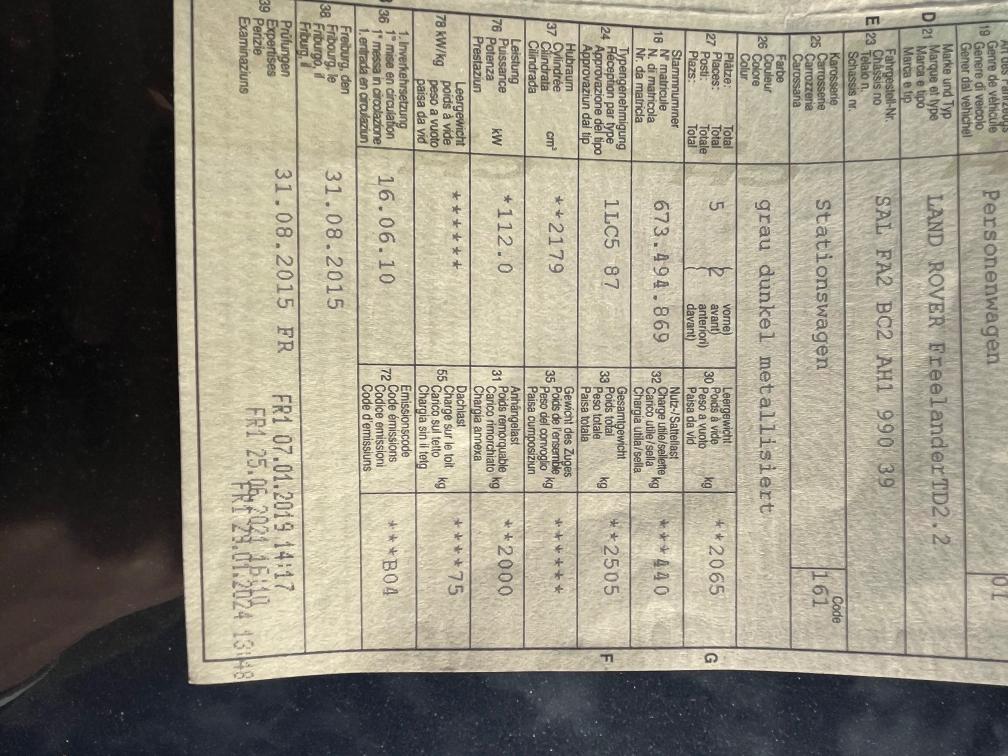 Personenwagen
01
19 Genre de véhicule
Genere di veicolo
Gener dal vehichel
Marke und Typ
D 21 Marque et type
Marca e tipo
Marca e tip
LAND ROVER FreelanderTD2.2
Fahrgestell-Nr.
E 23 Châssis no
Telaio n.
Schassis nr.
SAL FA2 BC2 AH1 990 39
Karosserie
25 Carrosserie
Carrozzeria
Carossaria
Stationswagen
Code
161
Farbe
26 Couleur
Colore
Colur
grau dunkel metallisiert
Plätze: Total
27 Places: Total
Posti: Totale
Plazs: Total
5 (2
vorne)
avant)
anteriori)
davant)
Leergewicht
30 Poids à vide
Peso a vuoto kg
Paisa da vid
**2065
G
Stammnummer
18 N° matricule
N. di matricola
Nr. da matricla
673.494.869
Nutz-/Sattellast
32 Charge utile/sellette
Carico utile/sella kg
Chargia utila/sella
***440
Typengenehmigung
24 Réception par type
Approvazione del tipo
Approvaziun dal tip
1LC5 87
Gesamtgewicht
33 Poids total
Peso totale kg
Paisa totala
**2505
F
Hubraum
37 Cylindrée
Cilindrata cm³
Cilindrada
**2179
Gewicht des Zuges
35 Poids de l'ensemble
Peso del convoglio kg
Paisa cumposiziun
******
Leistung
76 Puissance
Potenza kW
Prestaziun
*112.0
Anhängelast
31 Poids remorquable
Carico rimorchiato kg
Chargia annexa
**2000
Leergewicht
78 kW/kg poids à vide
peso a vuoto
paisa da vid
******
Dachlast
55 Charge sur le toit
Carico sul tetto kg
Chargia sin il tetg
****75
1. Inverkehrsetzung
36 1re mise en circulation
1a messa in circolazione
1. entrada en circulaziun
16.06.10
Emissionscode
72 Code émissions
Codice emissioni
Code d'emissiuns
***B04
Freiburg, den
38 Fribourg, le
Friburgo, il
Friburg, il
31.08.2015
Prüfungen
39 Expertises
Perizie
Examinaziuns
31.08.2015 FR
FR1 07.01.2019 14:17
FR1 25.06.2021 16:10
FR1 29.01.2024 13:48